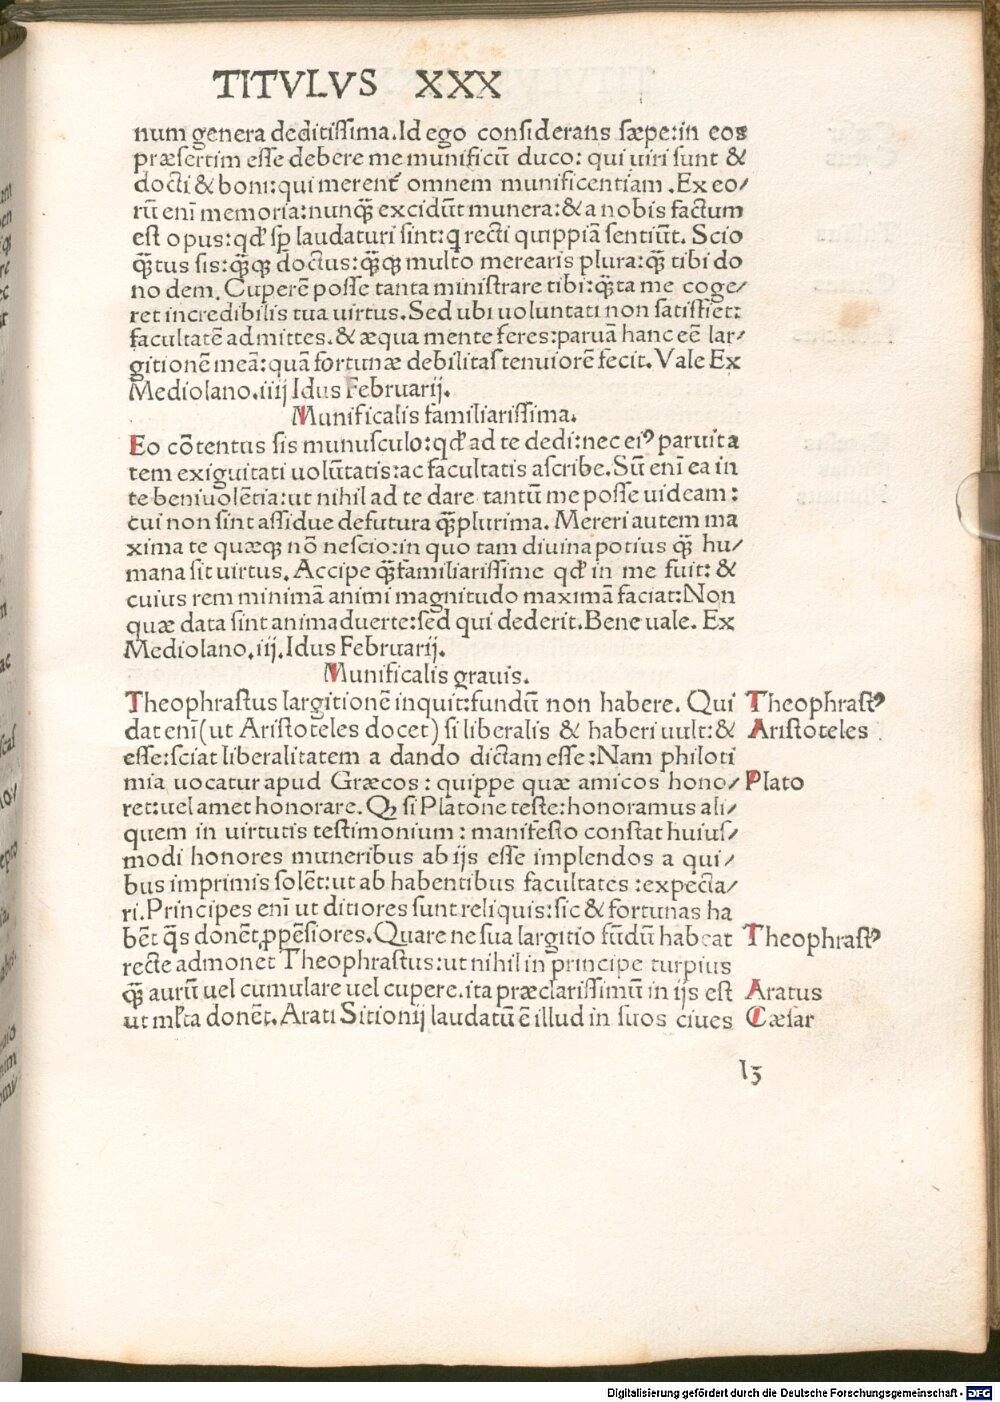 TITVLVS XXX
num genera deditissima. Id ego considerans sæpe: in eos
præsertim esse debere me munificū duco: qui uiri sunt &
docti & boni: qui merent᷑ omnem munificentiam. Ex eo/
rū enī memoria: nunꝗ̄ excidūt munera: & a nobis factum
est opus: qđ sp̄ laudaturi sint: q recti quippiā sentiūt. Scio
ꝗ̄tus sis: ꝗ̄qꝫ doctus: ꝗ̄qꝫ multo merearis plura: ꝗ̄ tibi do
no dem. Cuperē posse tanta ministrare tibi: ꝗ̄ta me coge/
ret incredibilis tua uirtus. Sed ubi uoluntati non satisfiet:
facultatē admittes. & æqua mente feres: paruā hanc eē lar/
gitionē meā: quā fortunæ debilitas tenuiorē fecit. Vale Ex
Mediolano. iiij Idus Februarij.
Munificalis familiarissima.
Eo cōtentus sis munusculo: qđ ad te dedi: nec eiꝰ paruita
tem exiguitati uolūtatis: ac facultatis ascribe. Sū enī ea in
te beniuolētia: ut nihil ad te dare tantū me posse uideam:
cui non sint assidue defutura ꝗ̄plurima. Mereri autem ma
xima te quæqꝫ nō nescio: in quo tam diuina potius ꝗ̄ hu/
mana sit uirtus. Accipe ꝗ̄familiarissime qđ in me fuit: &
cuius rem minimā animi magnitudo maximā faciat: Non
quæ data sint animaduerte: sed qui dederit. Bene uale. Ex
Mediolano. iij. Idus Februarij.
Munificalis grauis.
Theophrastus largitionē inquit: fundū non habere. Qui Theophrastꝰ
dat enī (ut Aristoteles docet) si liberalis & haberi uult: & Aristoteles
esse: sciat liberalitatem a dando dictam esse: Nam philoti
mia uocatur apud Græcos: quippe quæ amicos hono/ Plato
ret: uel amet honorare. Qꝫ si Platone teste: honoramus ali/
quem in uirtutis testimonium: manifesto constat huius/
modi honores muneribus ab ijs esse implendos a qui/
bus imprimis solēt: ut ab habentibus facultates: expecta/
ri. Principes enī ut ditiores sunt reliquis: sic & fortunas ha
bēt q̄s donēt ꝓpēsiores. Quare ne sua largitio fūdū habeat Theophrastꝰ
recte admonet Theophrastus: ut nihil in principe turpius
ꝗ̄ aurū uel cumulare uel cupere. ita præclarissimū in ijs est Aratus
ut ml̄ta donēt. Arati Sitionij laudatū ē illud in suos ciues Cæsar
l3
Digitalisierung gefördert durch die Deutsche Forschungsgemeinschaft - DFG